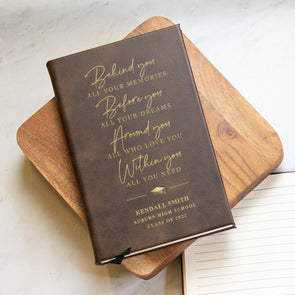 Behind you
ALL YOUR MEMORIES
Before you
ALL YOUR DREAMS
Around you
ALL WHO LOVE YOU
Within you
ALL YOU NEED
KENDALL SMITH
AUBURN HIGH SCHOOL
CLASS OF 2022